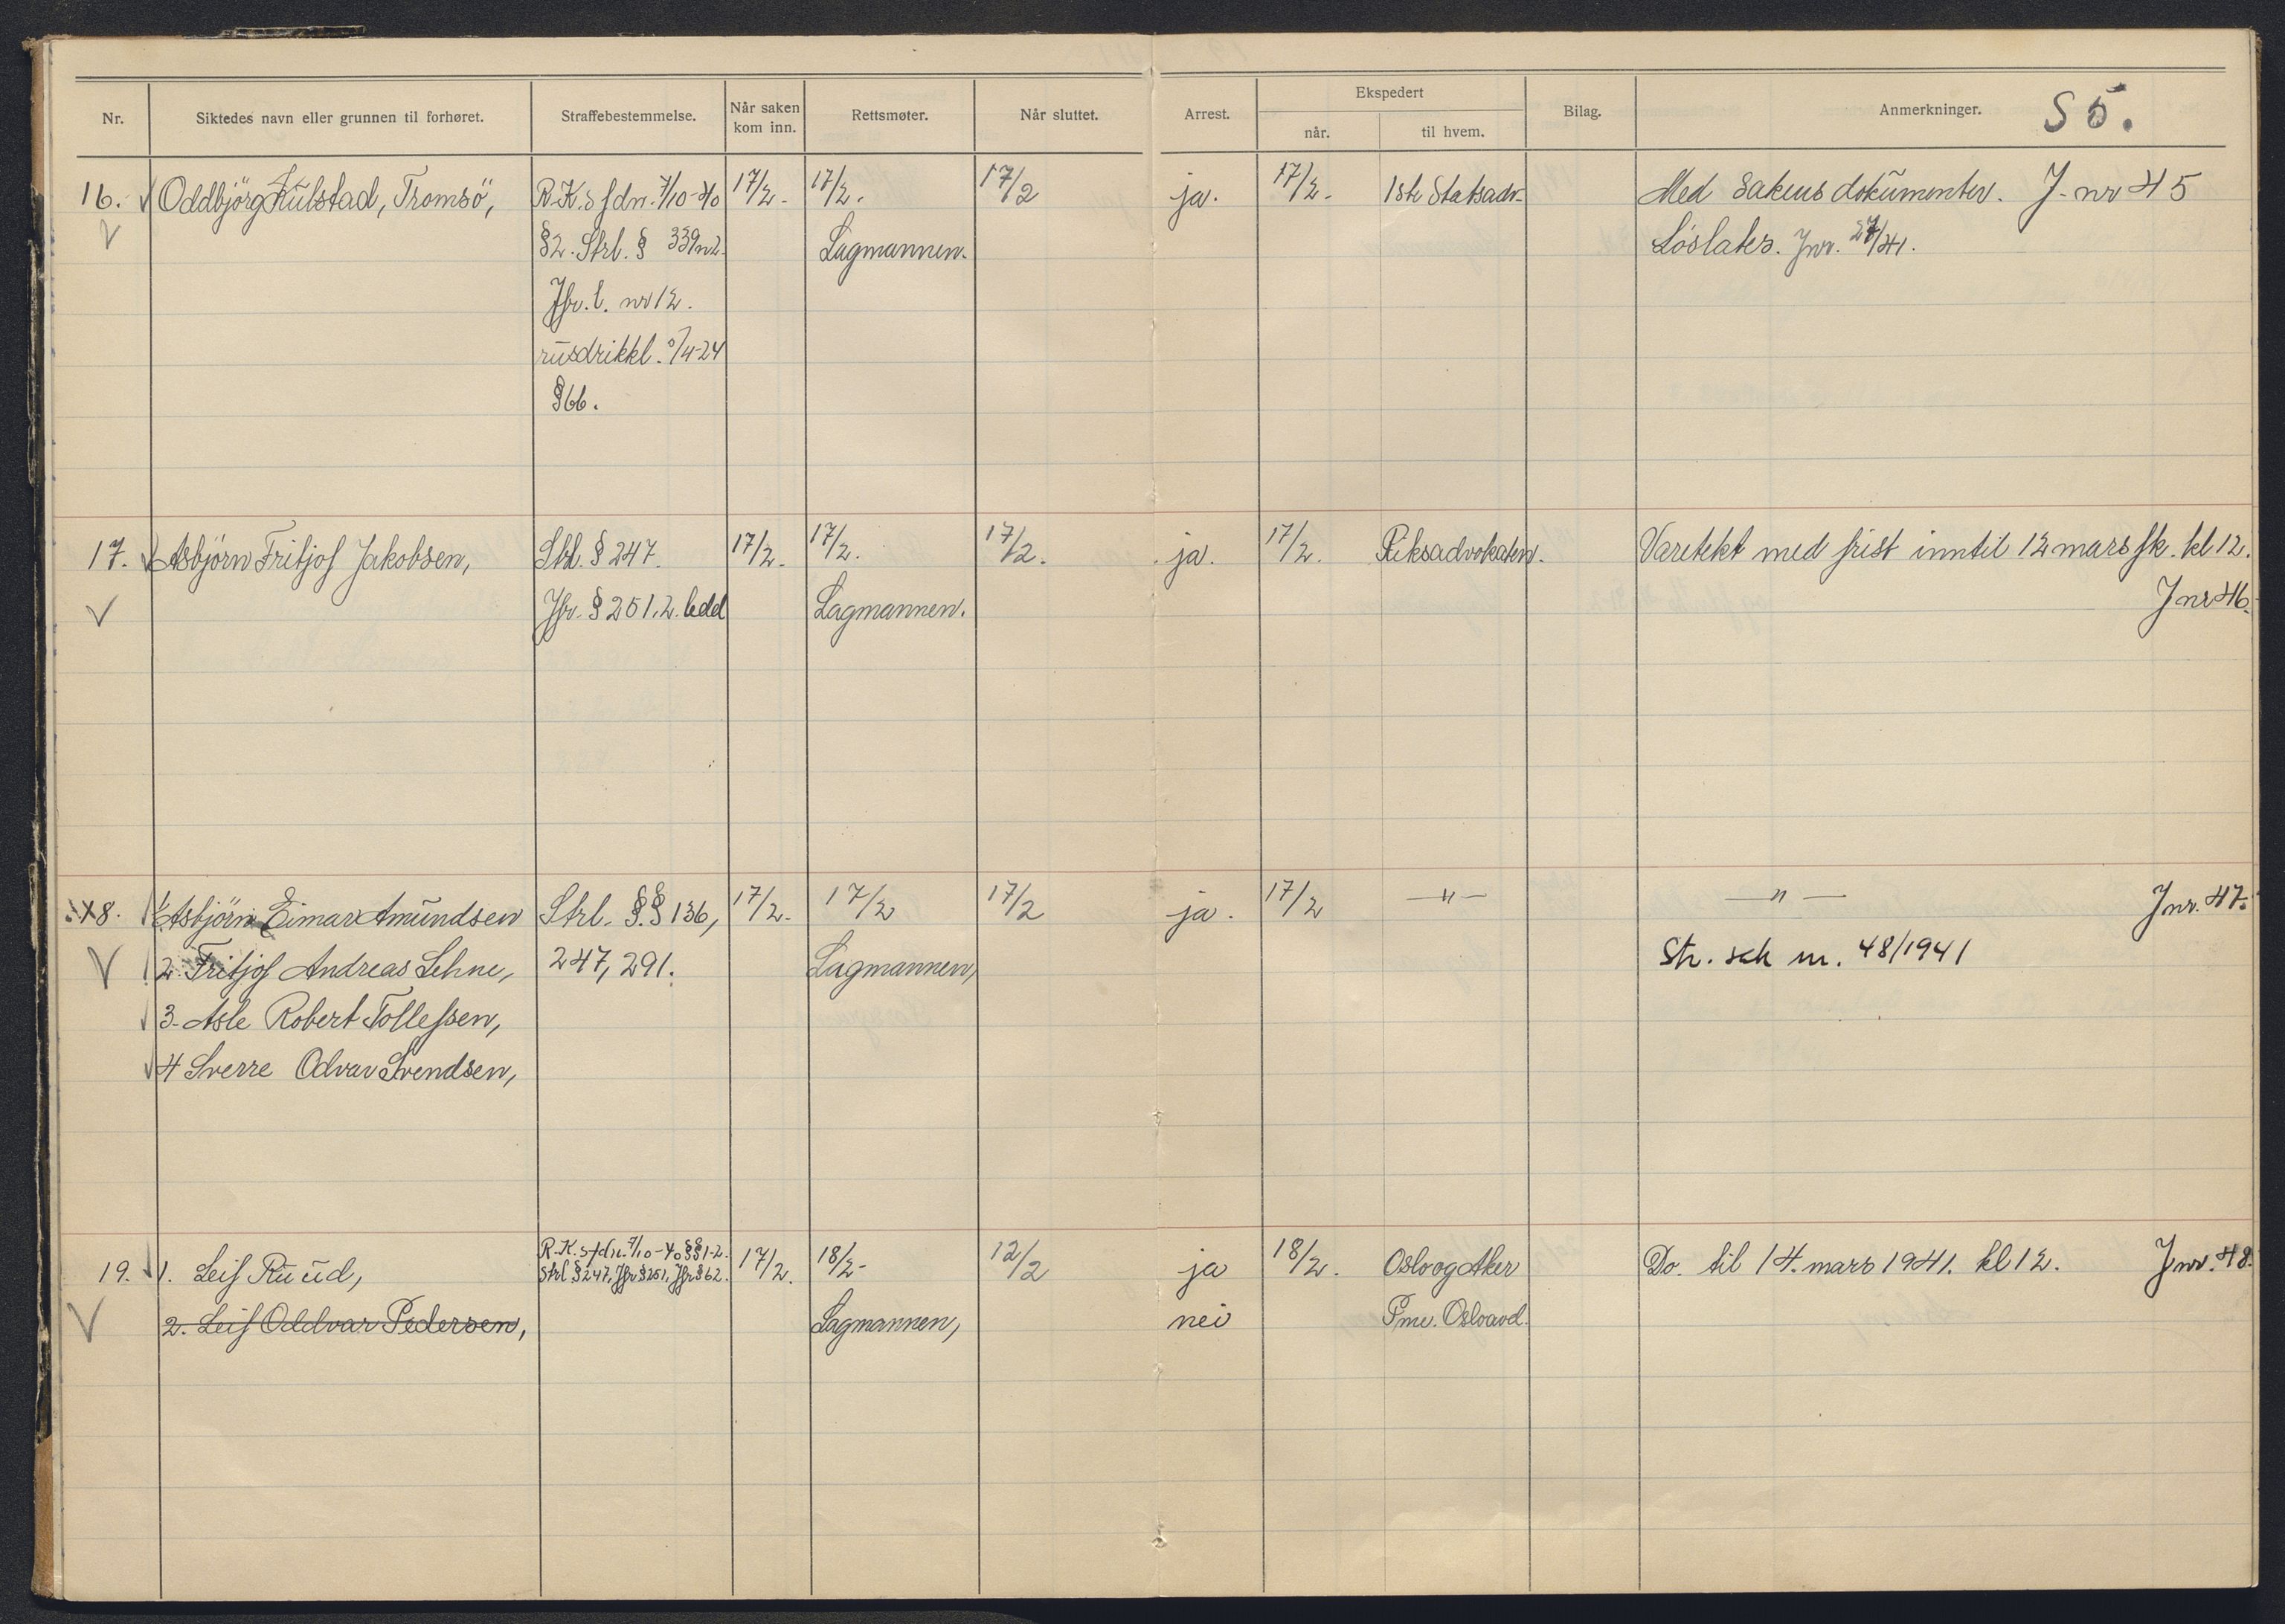 S 5.
Nr. Siktedes navn eller grunnen til forhøret. Straffebestemmelse. Når saken kom inn. Rettsmøter. Når sluttet. Arrest. Ekspedert når. til hvem. Bilag. Anmerkninger.
16. Oddbjörg Kulstad, Tromsö, R.K.s fdn. 7/10-40 17/2. 17/2. 17/2 ja. 17/2. 1ste Statsadv. Med sakens dokumenter. J-nr 45
§2. Strl. § 339 n2. Lagmannen. Löslates. Jnr. 27/41.
Jfr. l. nr 12.
rusdrikkl. 5/4-24
§66.
17. Asbjörn Fritjof Jakobsen, Strl. § 247. 17/2. 17/2. 17/2. ja. 17/2. Riksadvokaten. Varetekt med frist inntil 12 mars fk. kl 12.
Jfr. § 251, 2. ledd Lagmannen. J nr 46.
18. 1. Asbjörn Eimar Amundsen Strl. §.§ 136, 17/2. 17/2 17/2 ja. 17/2 —"— —"— J nr. 47.
2. Fritjof Andreas Lehne, 247, 291. Lagmannen, Str. sak nr. 48/1941
3. Asle Robert Tollefsen,
4 Sverre Odvar Svendsen,
19. 1. Leif Ruud, R.K.s fdn. 7/10-40 §§1-2. 17/2. 18/2- 12/2 ja 18/2. Oslo og Aker Do. til 14. mars 1941. kl 12. J nr. 48.
Strl § 247, Jfr § 251, Jfr § 62.
2. Leif Oddvar Pedersen, Lagmannen, nei Pme. Osloavd.